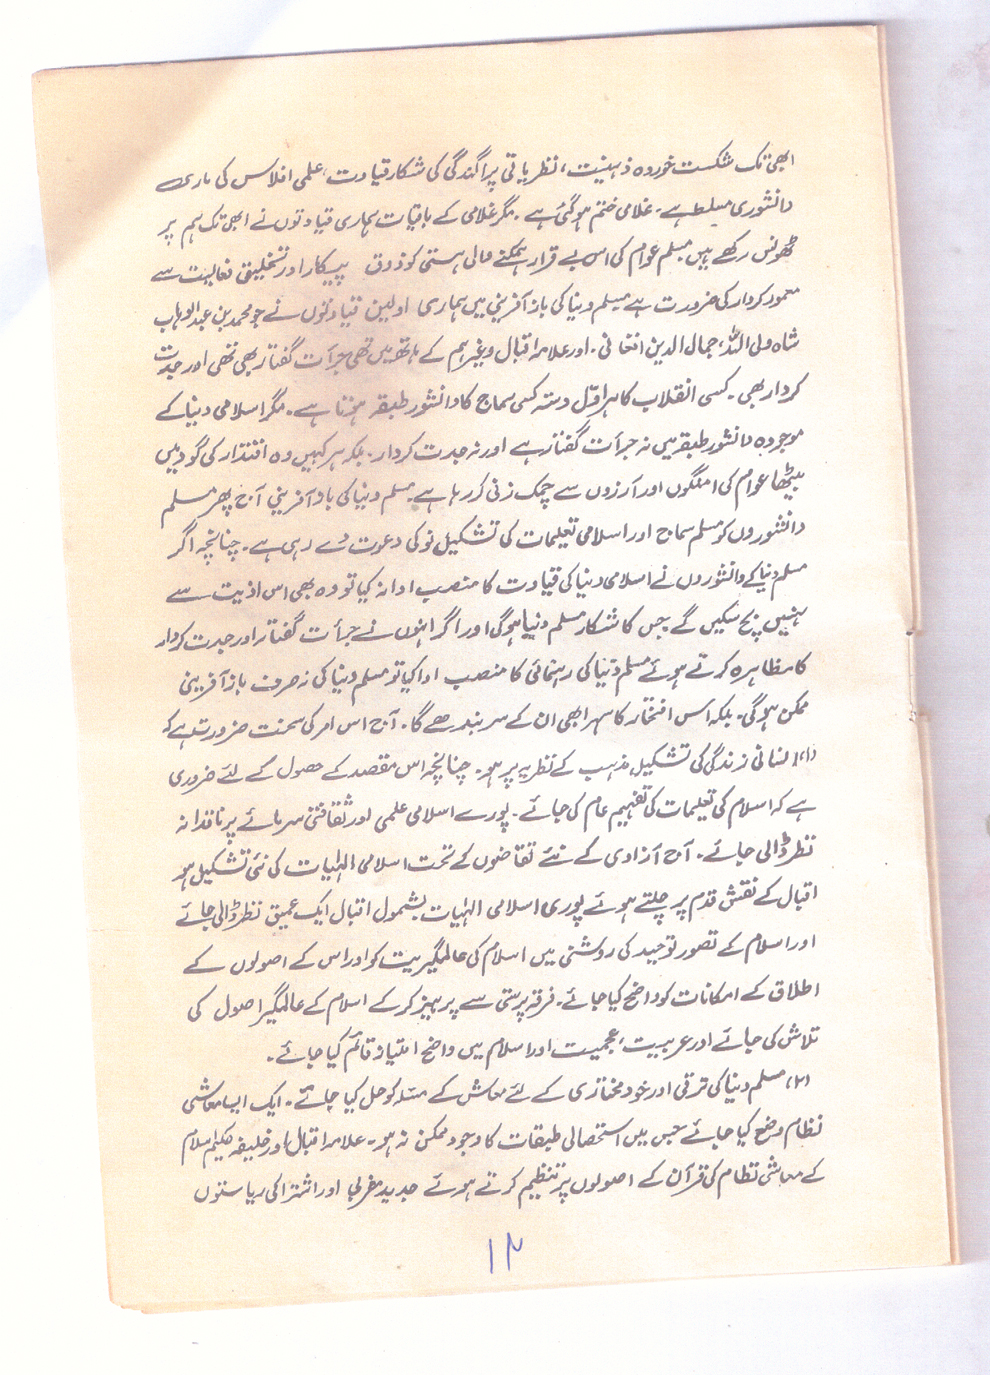 ابھی تک شکست خوردہ ذہنیت، نظریاتی پراگندگی کی شکار قیادت، علمی افلاس کی ماری
دانشوری مسلط ہے۔ غلامی ختم ہو گئی ہے۔ مگر غلامی کے باقیات ہماری قیادتوں نے ابھی تک ہم پر
ٹھونس رکھے ہیں مسلم عوام کی اس بے قرار ہمکنے والی ہستی کو ذوق پیکار اور تخلیقی فعالیت سے
معمور کردار کی ضرورت ہے مسلم دنیا کی باز آفرینی میں ہماری اولین قیادتوں نے جو محمد بن عبدالوہاب
شاہ ولی اللہ، جمال الدین افغانی۔ اور علامہ اقبال وغیرہم کے ہاتھ میں تھی جرأت گفتار بھی تھی اور جدت
کردار بھی۔ کسی انقلاب کا ہراوّل دستہ کسی سماج کا دانشور طبقہ ہوتا ہے۔ مگر اسلامی دنیا کے
موجودہ دانشور طبقہ میں نہ جرأت گفتار ہے اور نہ جدت کردار۔ بلکہ ہر کہیں وہ اقتدار کی گود میں
بیٹھا عوام کی امنگوں اور آرزوں سے چمک زنی کر رہا ہے۔ مسلم دنیا کی باد آفرینی آج پھر مسلم
دانشوروں کو مسلم سماج اور اسلامی تعلیمات کی تشکیل نو کی دعوت دے رہی ہے۔ چنانچہ اگر
مسلم دنیا کے دانشوروں نے اسلامی دنیا کی قیادت کا منصب ادا نہ کیا تو وہ بھی اس اذیت سے
نہیں بچ سکیں گے جس کا شکار مسلم دنیا ہوگی اور اگر انہوں نے جرأت گفتار اور جدت کردار
کا مظاہرہ کرتے ہوئے مسلم دنیا کی رہنمائی کا منصب ادا کیا تو مسلم دنیا کی نہ صرف باز آفرینی
ممکن ہوگی۔ بلکہ اس افتخار کا سہرا بھی ان کے سر بندھے گا۔ آج اس امر کی سخت ضرورت ہے کہ
(۱) انسانی زندگی کی تشکیل مذہب کے نظریہ پر ہو۔ چنانچہ اس مقصد کے حصول کے لئے ضروری
ہے کہ اسلام کی تعلیمات کی تفہیم عام کی جائے۔ پورے اسلامی علمی اور ثقافتی سرمائے پر ناقدانہ
نظر ڈالی جائے۔ آج آزادی کے نئے تقاضوں کے تحت اسلامی الہٰیات کی نئی تشکیل ہو
اقبال کے نقش قدم پر چلتے ہوئے پوری اسلامی الہٰیات بشمول اقبال ایک عمیق نظر ڈالی جائے
اور اسلام کے تصور توحید کی روشنی میں اسلام کی عالمگیریت کو اور اس کے اصولوں کے
اطلاق کے امکانات کو واضح کیا جائے۔ فرقہ پرستی سے پرہیز کرکے اسلام کے عالمگیر اصول کی
تلاش کی جائے اور عربیت، عجمیت اور اسلام میں واضح امتیاز قائم کیا جائے۔
(۲) مسلم دنیا کی ترقی اور خود مختاری کے لئے معاش کے مسئلہ کو حل کیا جائے۔ ایک ایسا معاشی
نظام وضع کیا جائے جس میں استحصالی طبقات کا وجود ممکن نہ ہو۔ علامہ اقبال اور خلیفہ حکیم اسلام
کے معاشی نظام کی قرآن کے اصولوں پر تنظیم کرتے ہوئے جدید مغربی اور اشتراکی ریاستوں
۱۲